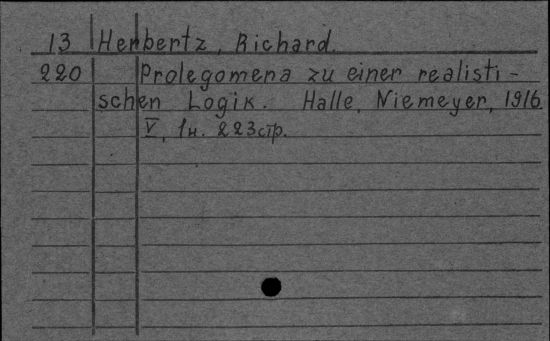 13 Herbertz, Richard.
220 Prolegomena zu einer realisti-
schen Logik. Halle, Niemeyer, 1916
V, 1н. 223стр.